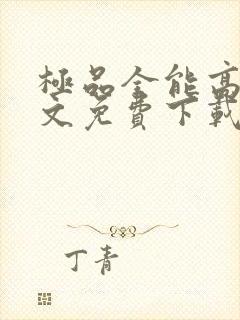 極品全能高
文免費下載
丁青